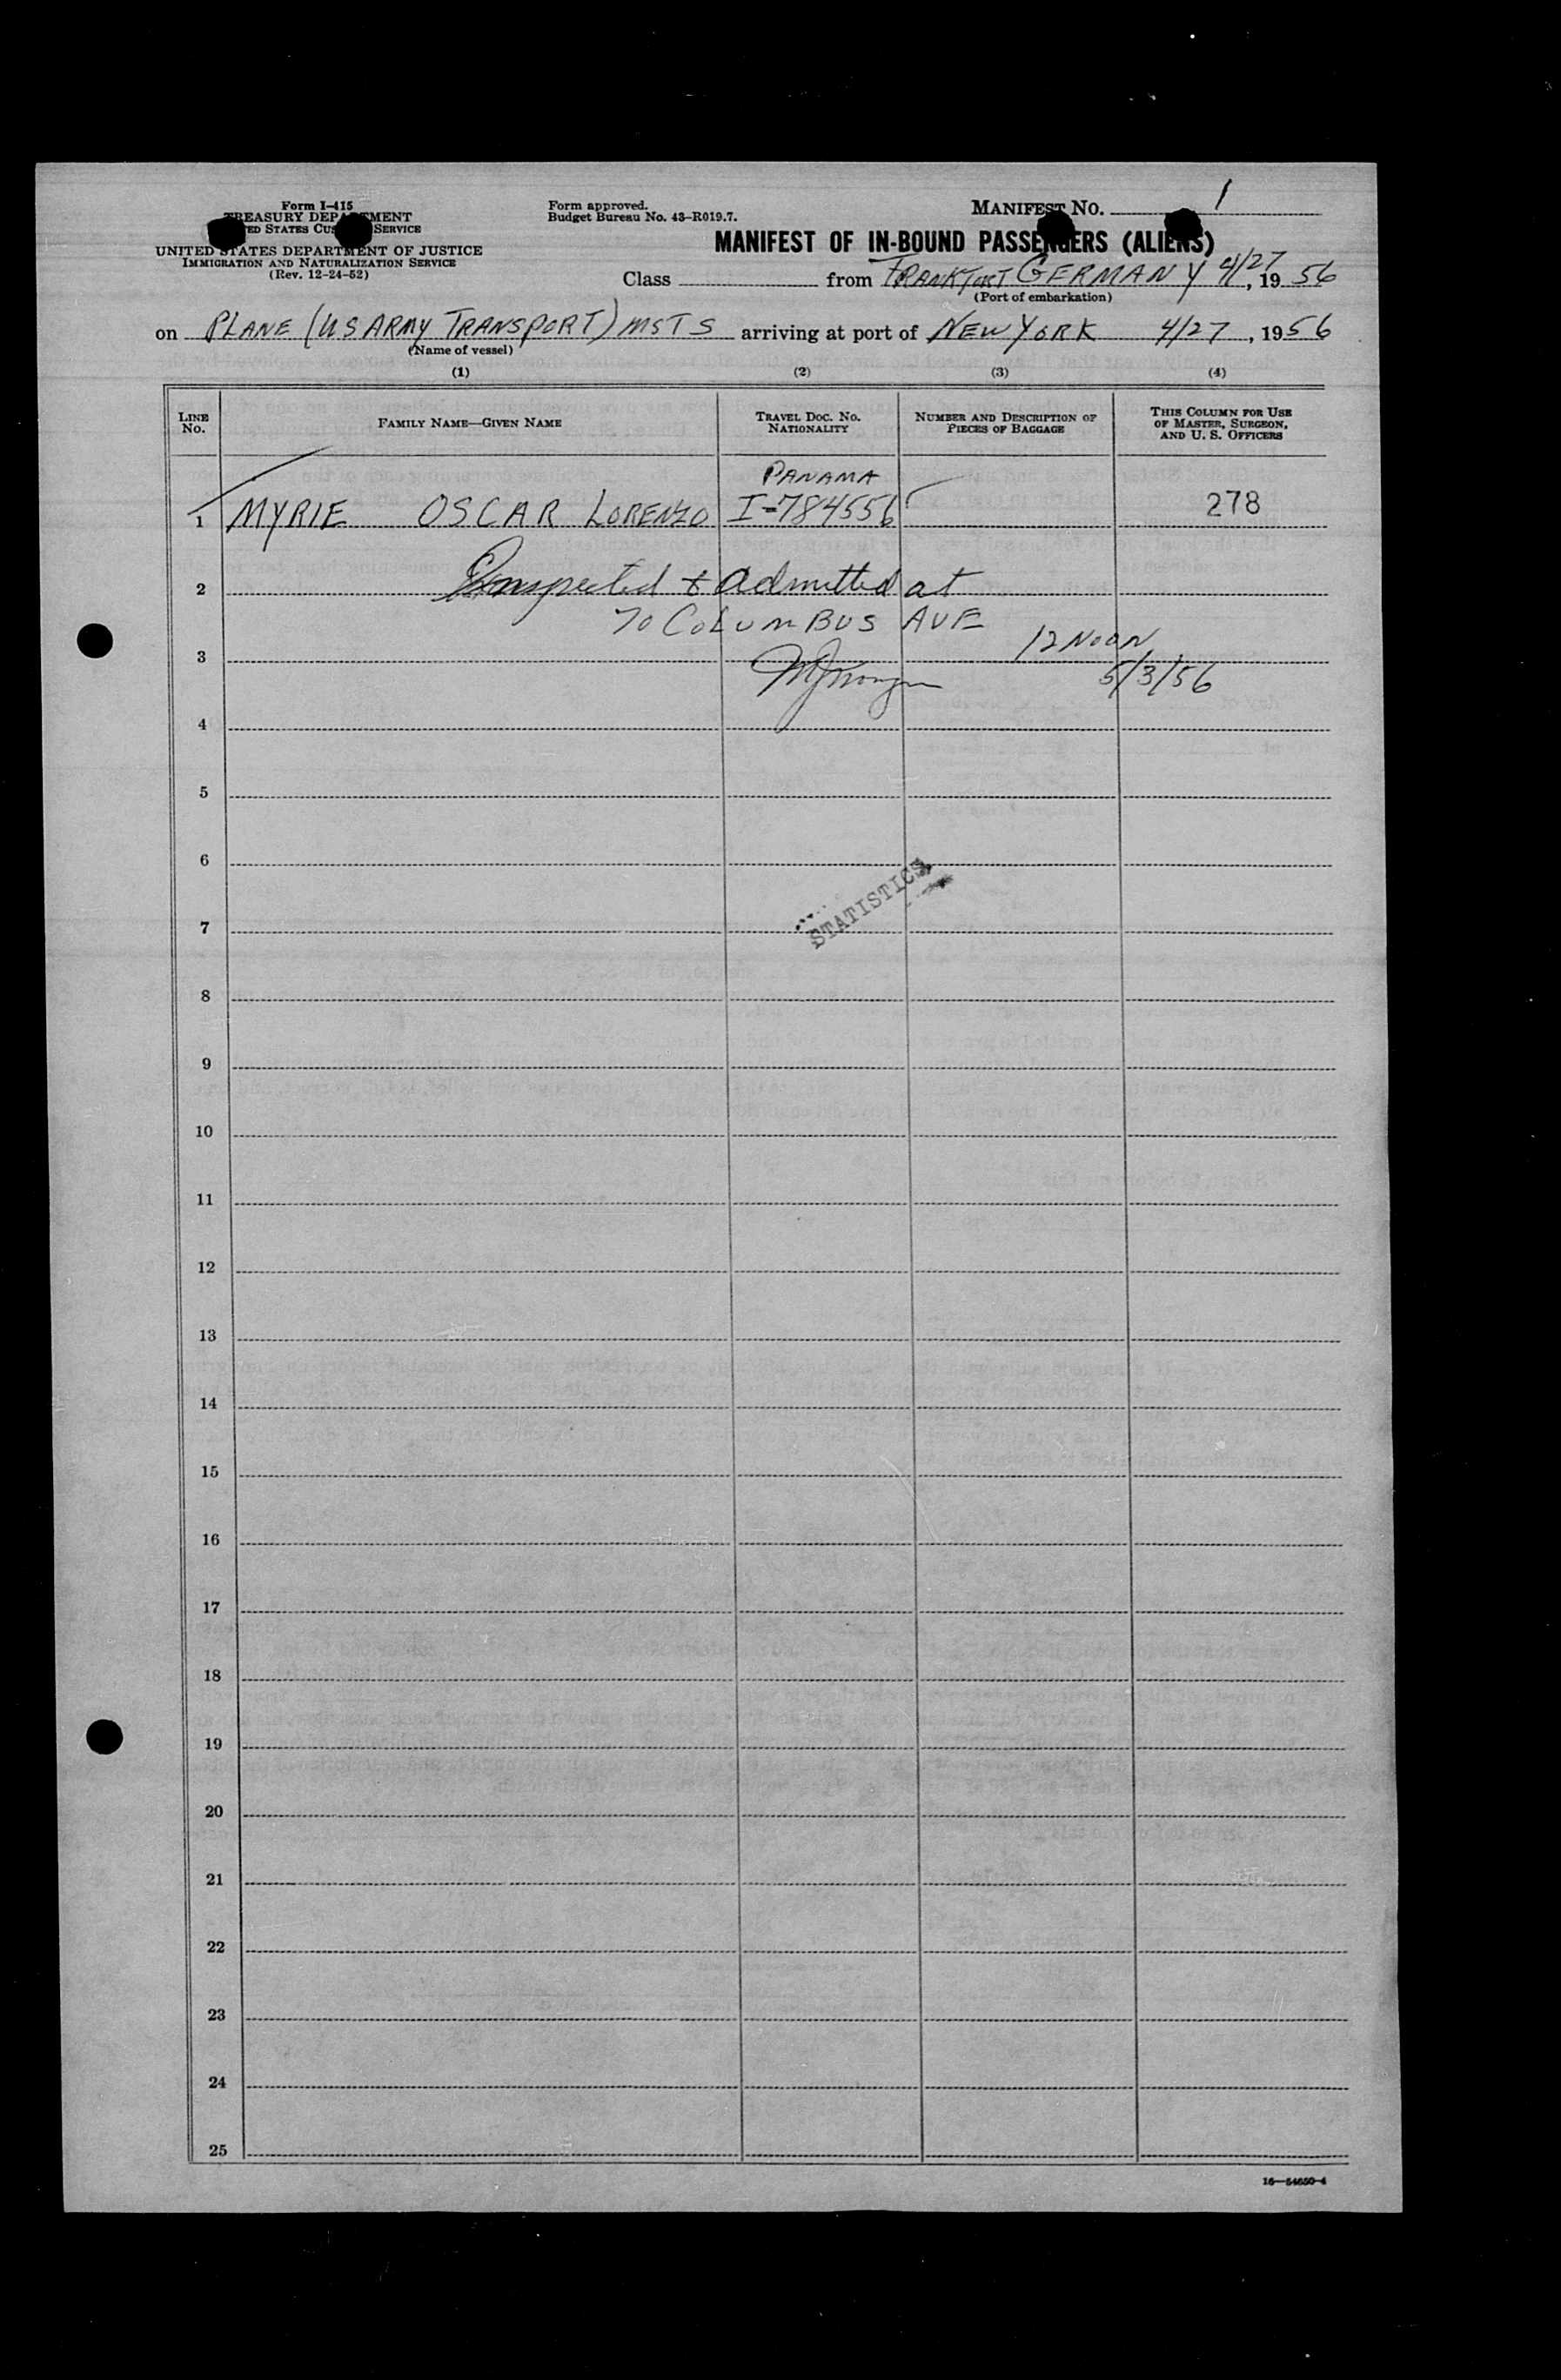 Form I-415
TREASURY DEPARTMENT
UNITED STATES CUSTOMS SERVICE
UNITED STATES DEPARTMENT OF JUSTICE
IMMIGRATION AND NATURALIZATION SERVICE
(Rev. 12-24-52)
Form approved.
Budget Bureau No. 43-R019.7.
MANIFEST NO. 1
MANIFEST OF IN-BOUND PASSENGERS (ALIENS)
Class from FRANKFORT GERMANY 4/27, 19 56
(Port of embarkation)
on PLANE (US ARMY TRANSPORT) MSTS arriving at port of NEW YORK 4/27, 1956
(Name of vessel)
(1) (2) (3) (4)
LINE NO. FAMILY NAME—GIVEN NAME TRAVEL DOC. NO. NATIONALITY NUMBER AND DESCRIPTION OF PIECES OF BAGGAGE THIS COLUMN FOR USE OF MASTER, SURGEON, AND U. S. OFFICERS
PANAMA
1 MYRIE OSCAR LORENZO I-784556 278
2 Inspected & Admitted at
70 COLUMBUS AVE
3 12 NOON
5/3/56
4
5
6
STATISTICS
7
8
9
10
11
12
13
14
15
16
17
18
19
20
21
22
23
24
25
16—54650-4